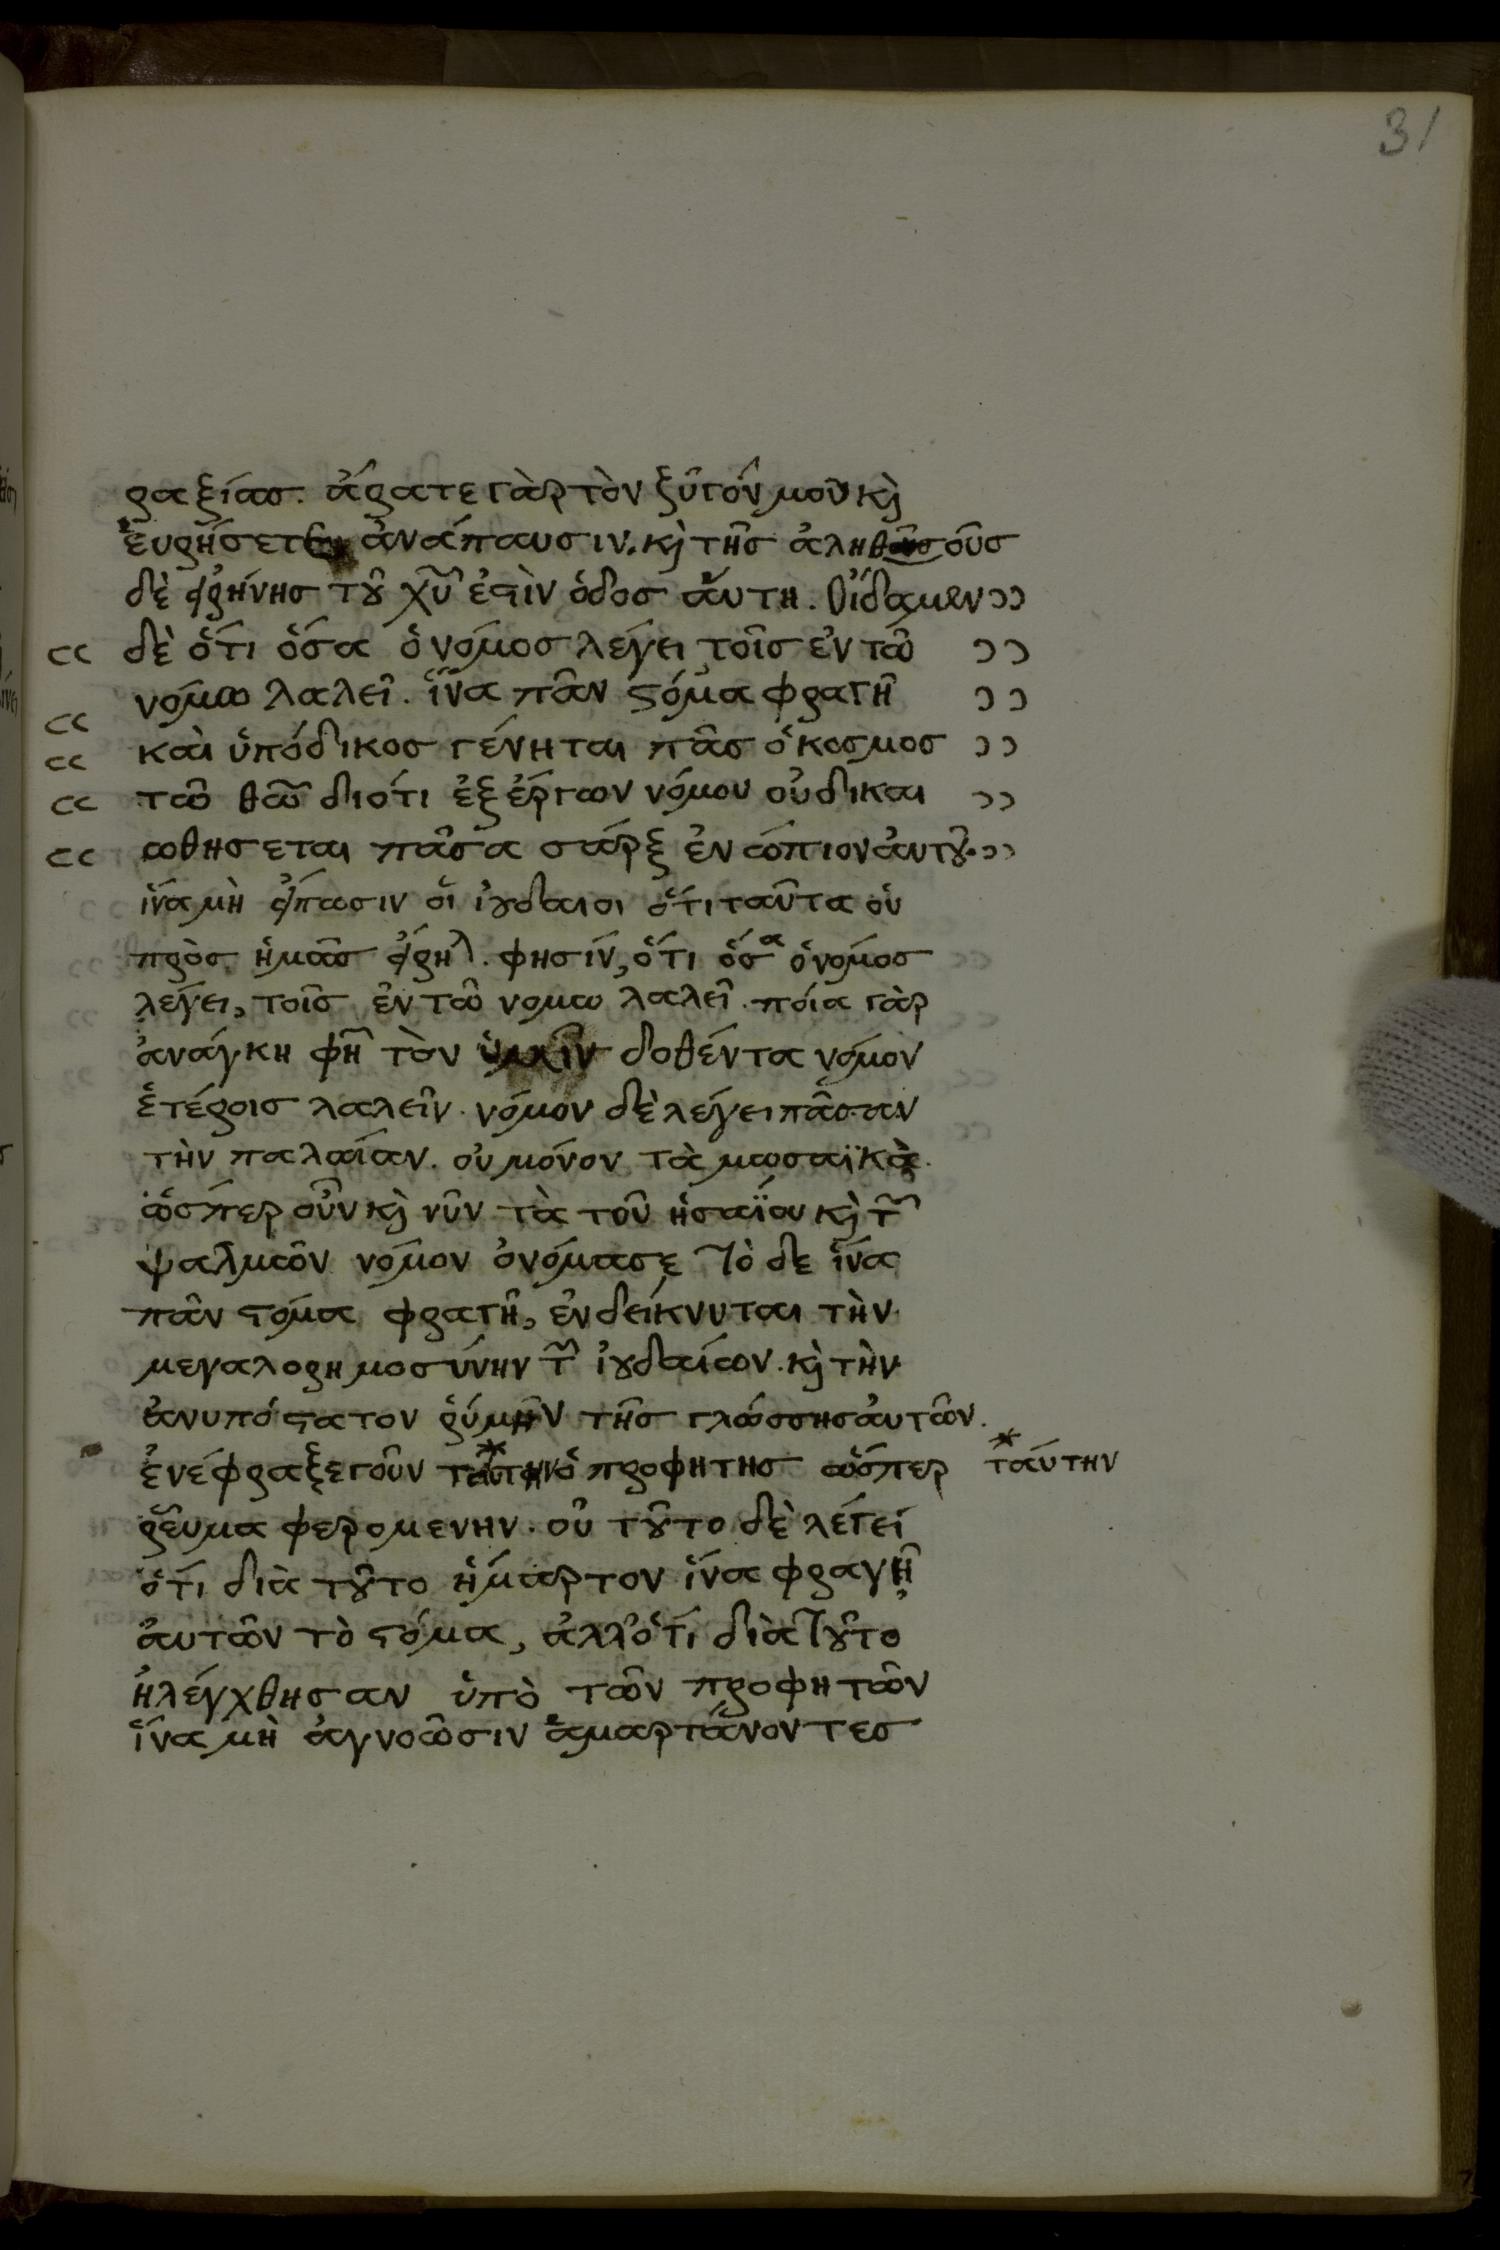 31
ραξίασ. ἄρατε γὰρ τὸν ξυγόν μου κὶ
ἑυρήσετε ἀνάπαυσιν. κὶ τῆσ ἀληθοῦσ
δὲ εἰρήνησ τȣ͂ χῦ ἐϛὶν ὁδοσ ἅυτη. Οἴδαμεν ››
‹‹ δὲ ὅτι ὅσα ὁ νόμοσ λέγει τοῖσ ἐν τῶ ››
‹‹ νόμω λαλεῖ. ἵνα πᾶν ϛόμα φραγῆ ››
‹‹ καὶ ὑπόδικοσ γένηται πᾶσ ὁ κοσμοσ ››
‹‹ τῶ θῶ διότι ἐξ ἐργων νόμου οὐ δικαι ››
‹‹ ωθησεται πᾶσα σάρξ ἐνώπιον ἀυτȣ͂. ››
ἵνα μὴ εἴπωσιν ὅι ἰȣδαιοι ὅτι ταῦτα οὐ
πρὸσ ἡμᾶσ εἴρηλ. φησίν, ὅτι ὅσα ὁ νόμοσ
λέγει, τοῖσ ἐν τῶ νομω λαλεῖ. ποία γὰρ
ἀνάγκη φῆ τὸν ὑμῖν δοθέντα νόμον
ἑτέροισ λαλεῖν. νόμον δὲ λέγει πᾶσαν
τὴν παλαίαν. ου μόνον τὰ μωσαϊκὰ.
ὥσπερ οὖν κὶ νῦν τὰ τοῦ ἡσαΐου κὶ τ῀
ψαλμῶν νόμον ὀνόμασε Τὸ δε ἵνα
πᾶν ϛόμα φραγῆ, ἐνδείκνυται τὴν
μεγαλορημοσύνην τ῀ ἰȣδαίων. κὶ τὴν
ἀνυπόϛατον ῥύμην τῆσ γλώσσησ ἀυτῶν.
ἐνέφραξε γοῦν ταύτην ὁ προφητησ ὥσπερ * ταύτην
ῥεῦμα φερομενην. οὐ τȣ͂το δὲ λέγει
ὅτι διὰ τȣ͂το ἥμαρτον ἵνα φραγῆ
ἀυτῶν τὸ ϛόμα, ἀλλ' ὅτι διὰ Τȣ͂το
ἠλέγχθησαν ὑπὸ τῶν προφητῶν
ἵνα μὴ ἀγνοῶσιν ἁμαρτάνοντεσ